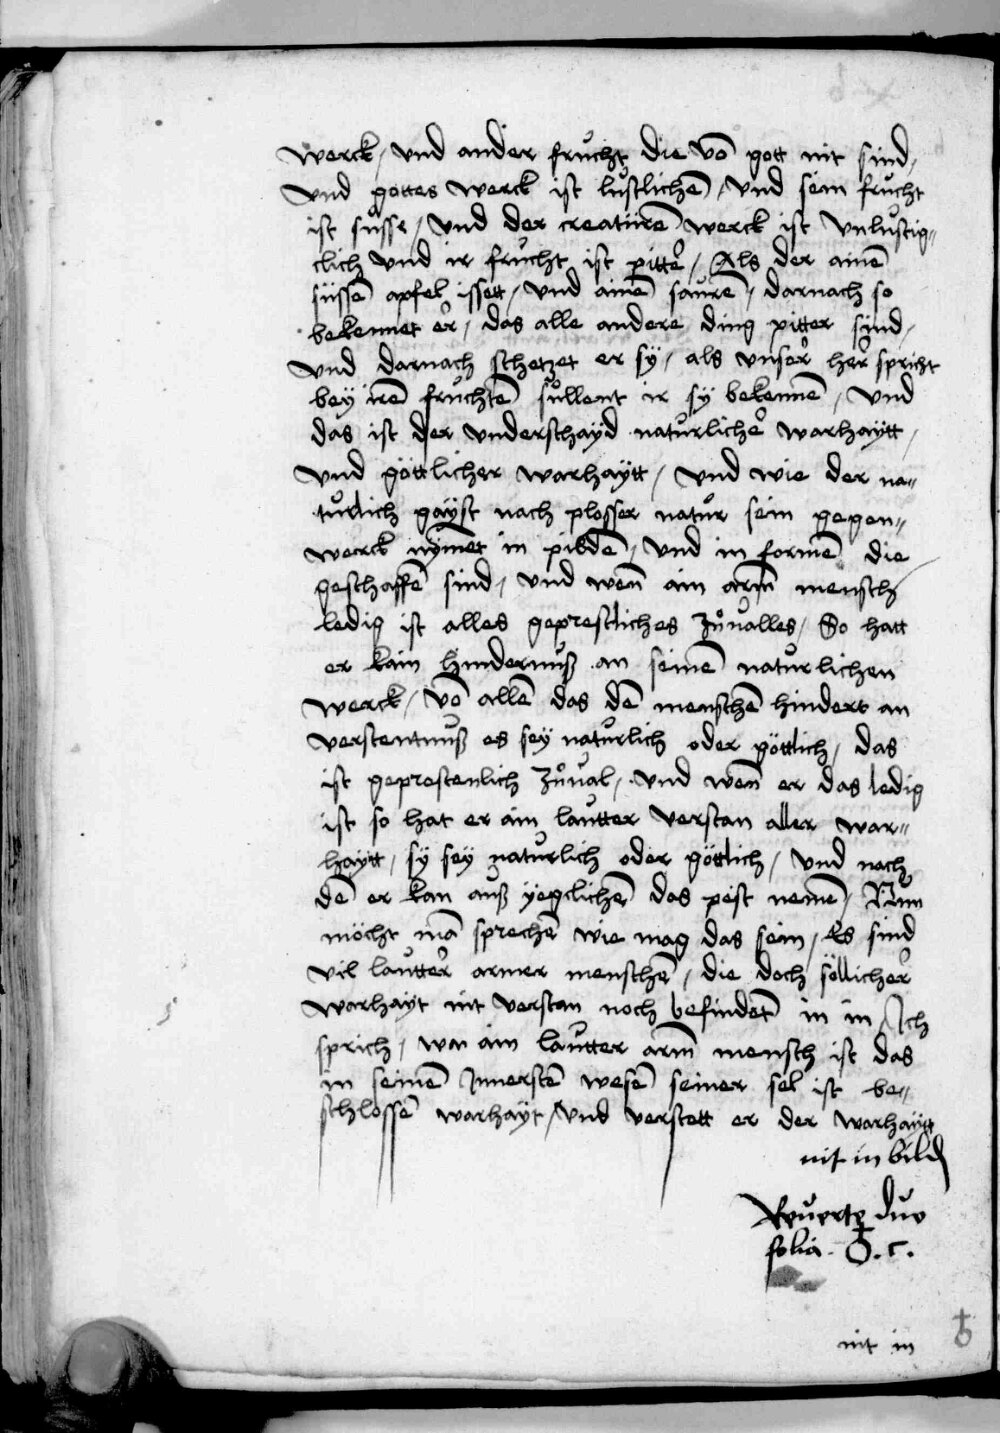 werck / vnd ander frucht die vō gott nit sind /
vnd gottes werck ist lustlichen̄ / vnd sein frucht
ist süsse / vnd der creatüren̄ werck ist vnlustig=
clich vnd ir frucht ist pitter / Als der ainē
süssen̄ apfel issett / vnd ainē saurē / darnach so
bekennet er / das alle andere ding pitter sind /
vnd darnach schetzet er sÿ / als vnser her spricht
beÿ irē fruchtē süllent ir sÿ bekennē / vnd
das ist der vnderschayd naturlicher warhaÿtt /
vnd göttlicher warhaÿtt / vnd wie der na=
turlich gaÿst nach plosser natur sein gegen=
werck nÿmet in pildē / vnd in formē die
geschaffē sind / vnd wen̄ ain arm̄ mensch
ledig ist alles geprestliches zůualles / So hatt
er kain hindernuß an seinē naturlichen
werck / vō allē das dē menschē hindert an
verstentnuß es seÿ naturlich oder göttlich / das
ist geprestenlich zůual / vnd wen̄ er das ledig
ist so hat er ain lautter verstan aller war=
haÿtt / sÿ seÿ naturlich oder göttlich / vnd nach
dē er kan auß ÿeglichē das pest nemē / Nun
möcht mā sprechē wie mag das sein / Es sind
vil lautter armer menschē / die doch söllicher
warhaÿt nit verstan noch befindet in in / Ich
sprich / wa ain lautter arm̄ mensch ist das
in seinē Innerstē wesē seiner sel ist be=
schlossē warhaÿt / vnd verstett er der warhaÿtt
nit in bild
Reuerte duo
folia
nit in